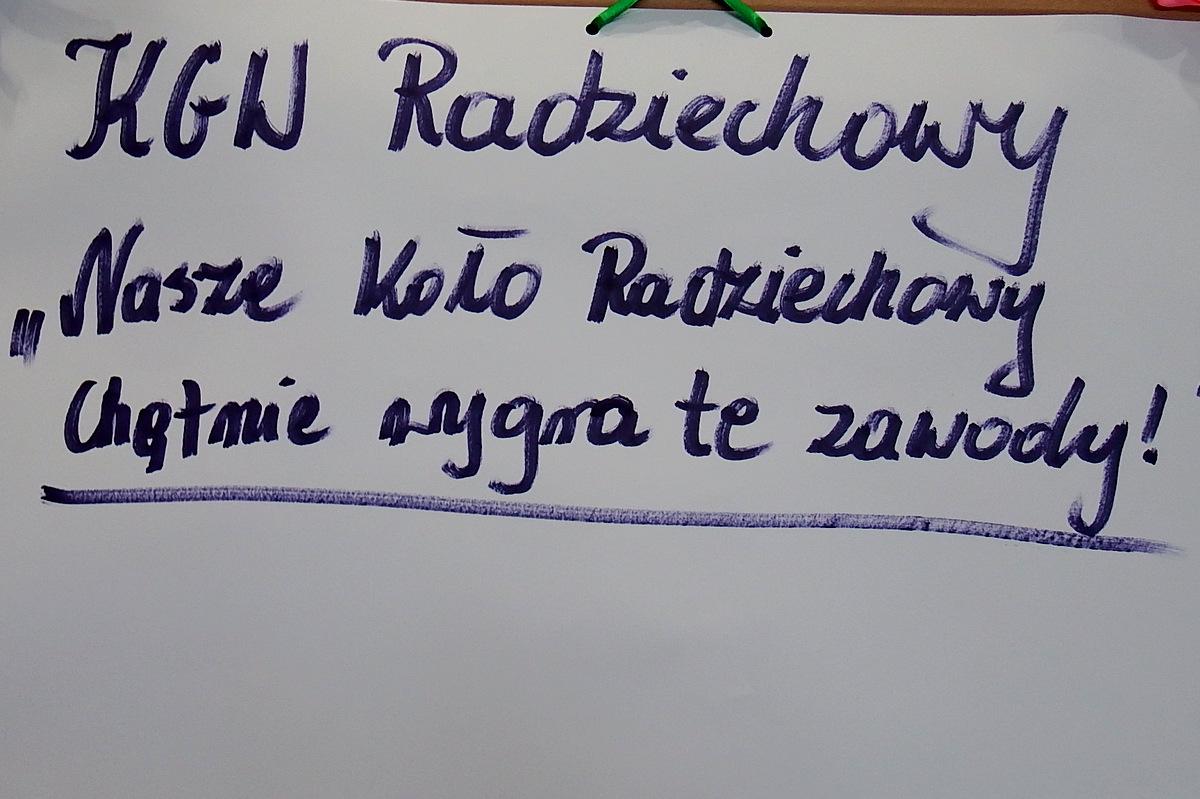 KGW Radziechowy
„Nasze Koło Radziechowy
Chętnie wygra te zawody!